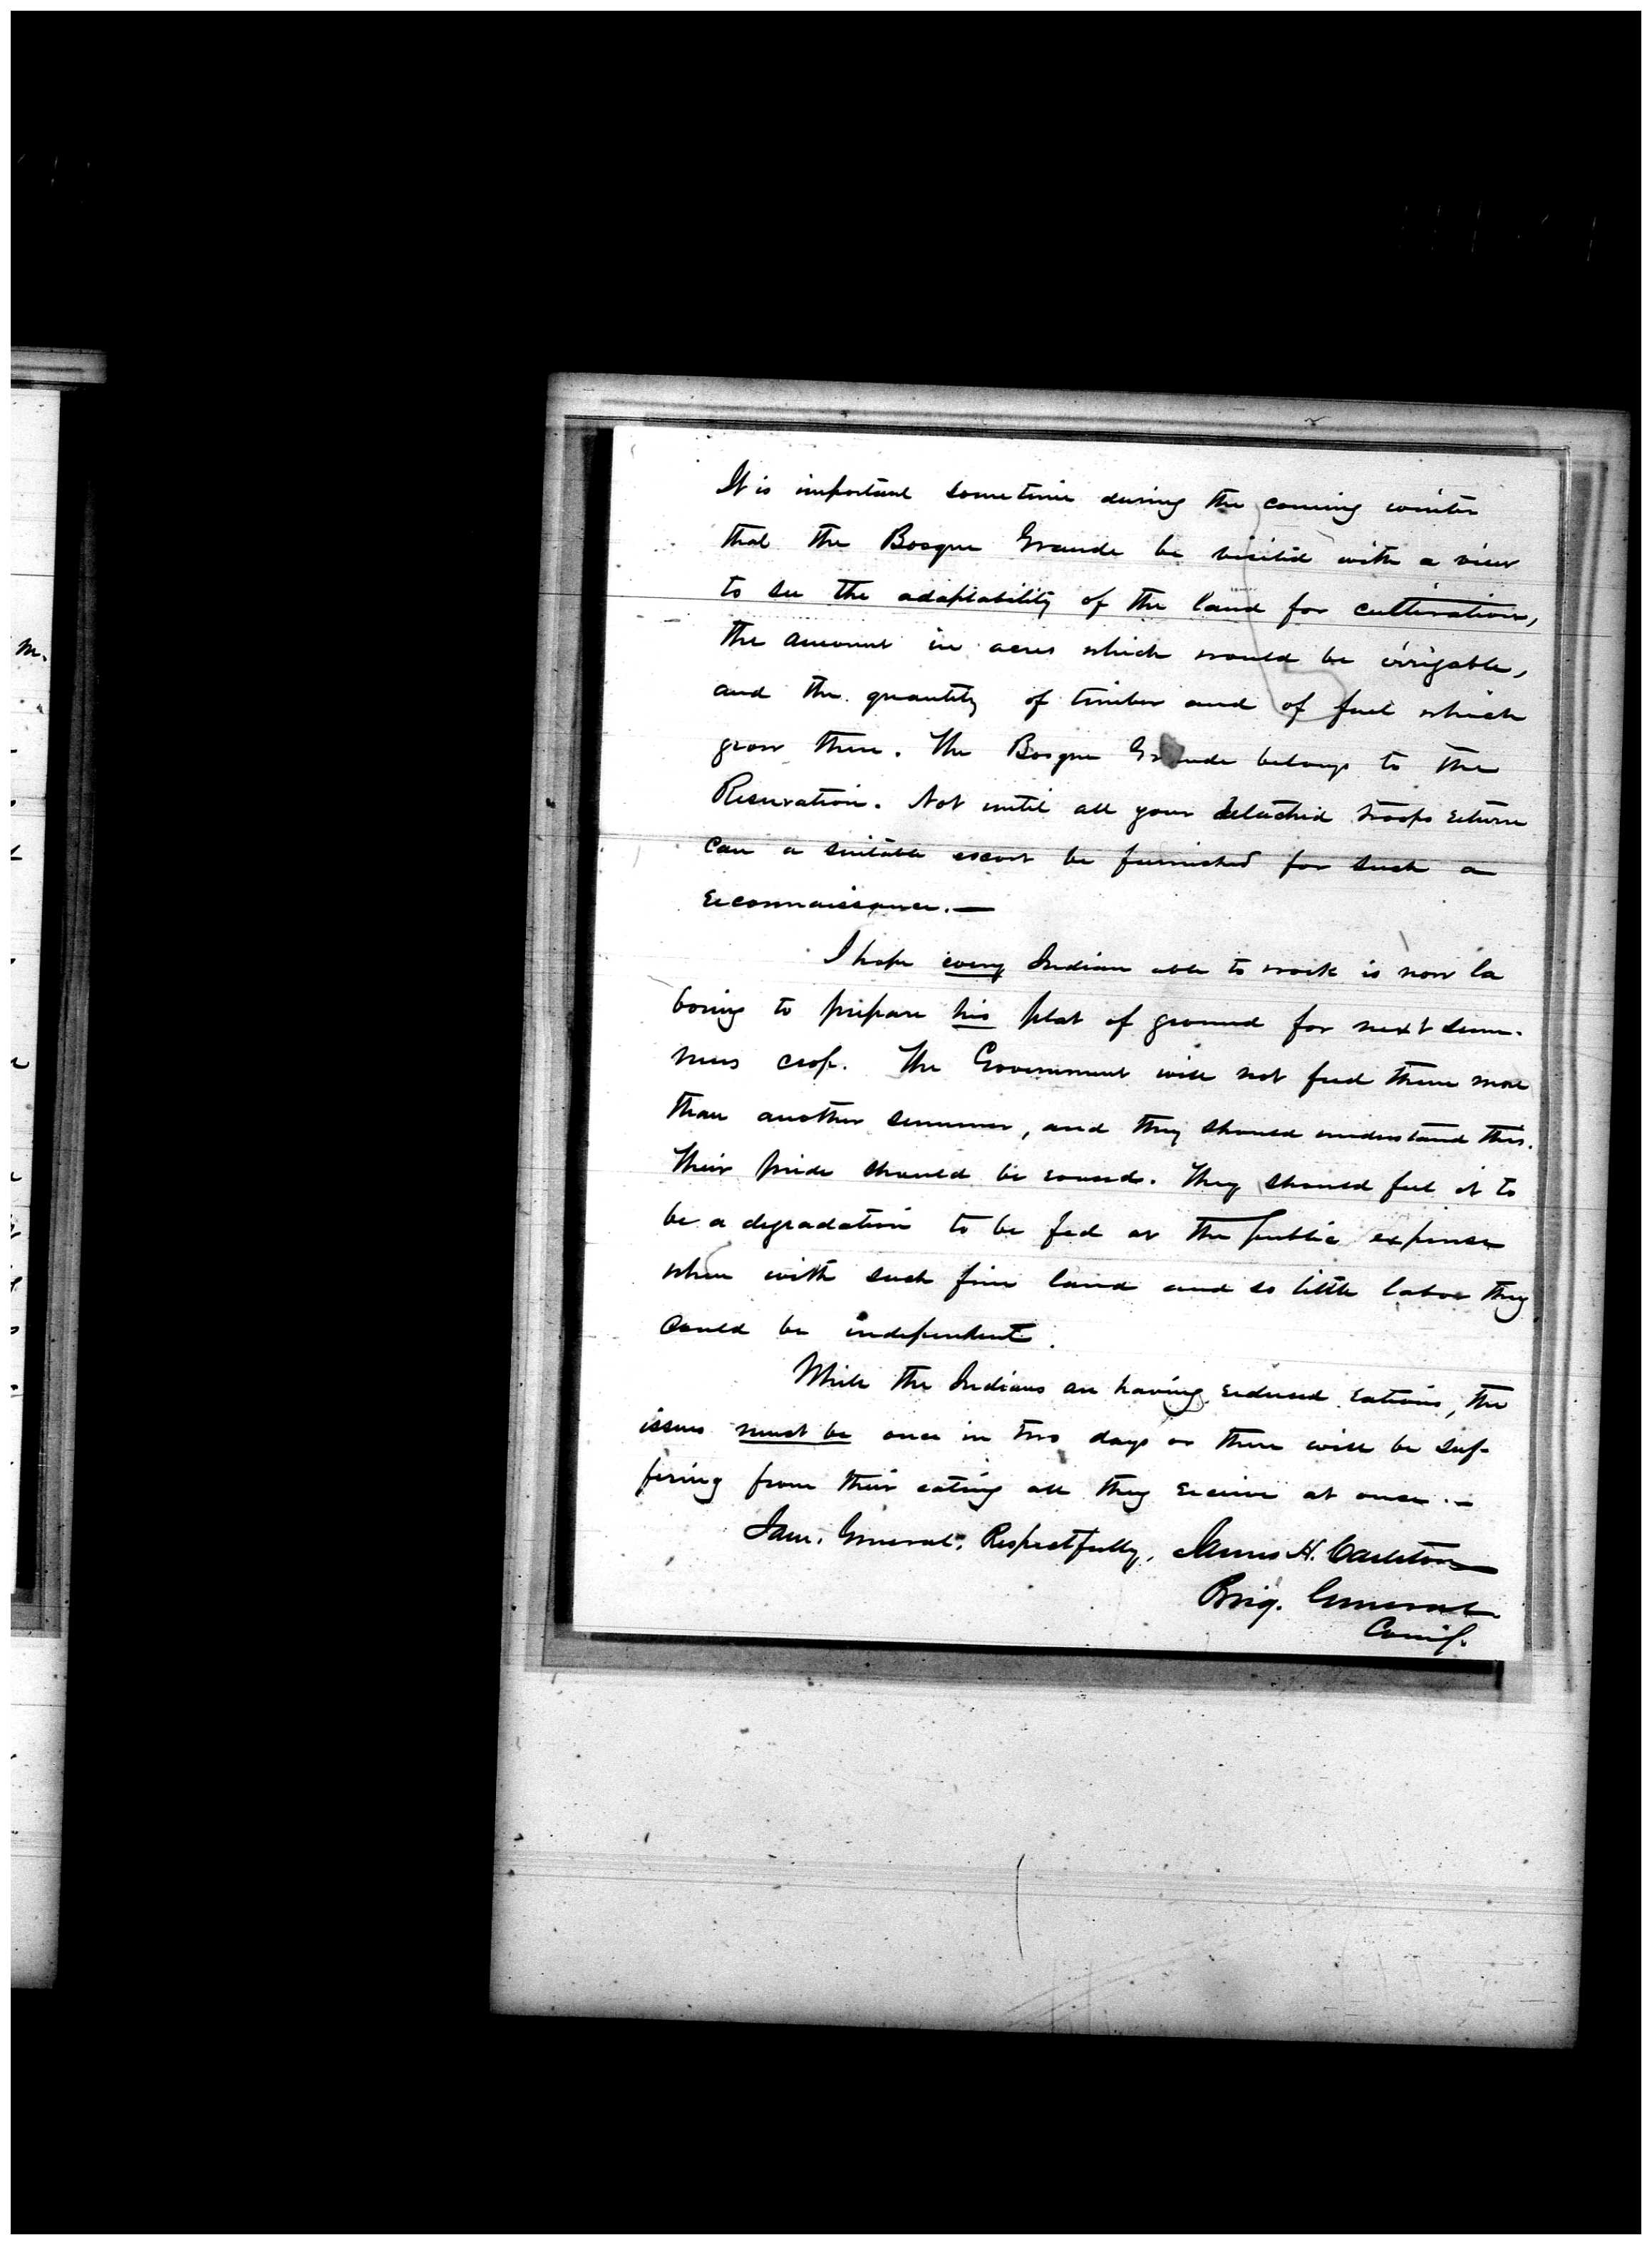 It is important sometime during the coming winter
that the Bosque Grande be visited with a view
to see the adaptability of the land for cultivation,
the amount in acres which would be irrigable,
and the quantity of timber and of fuel which
grow there. The Bosque Grande belongs to the
Reservation. Not until all your detached troops return
can a suitable escort be furnished for such a
reconnaissance.—
I hope every Indian able to work is now la
boring to prepare his plat of ground for next sum-
mers crop. The Government will not feed them more
than another summer, and they should understand this.
Their pride should be roused. They should feel it to
be a degradation to be fed at the public expense
when with such fine land and so little labor they
could be independent.
While the Indians are having reduced rations, the
issues must be once in two days or there will be suf-
fering from their eating all they receive at once.—
I am, General, Respectfully, James H. Carleton
Brig. General
Com'g.
m.